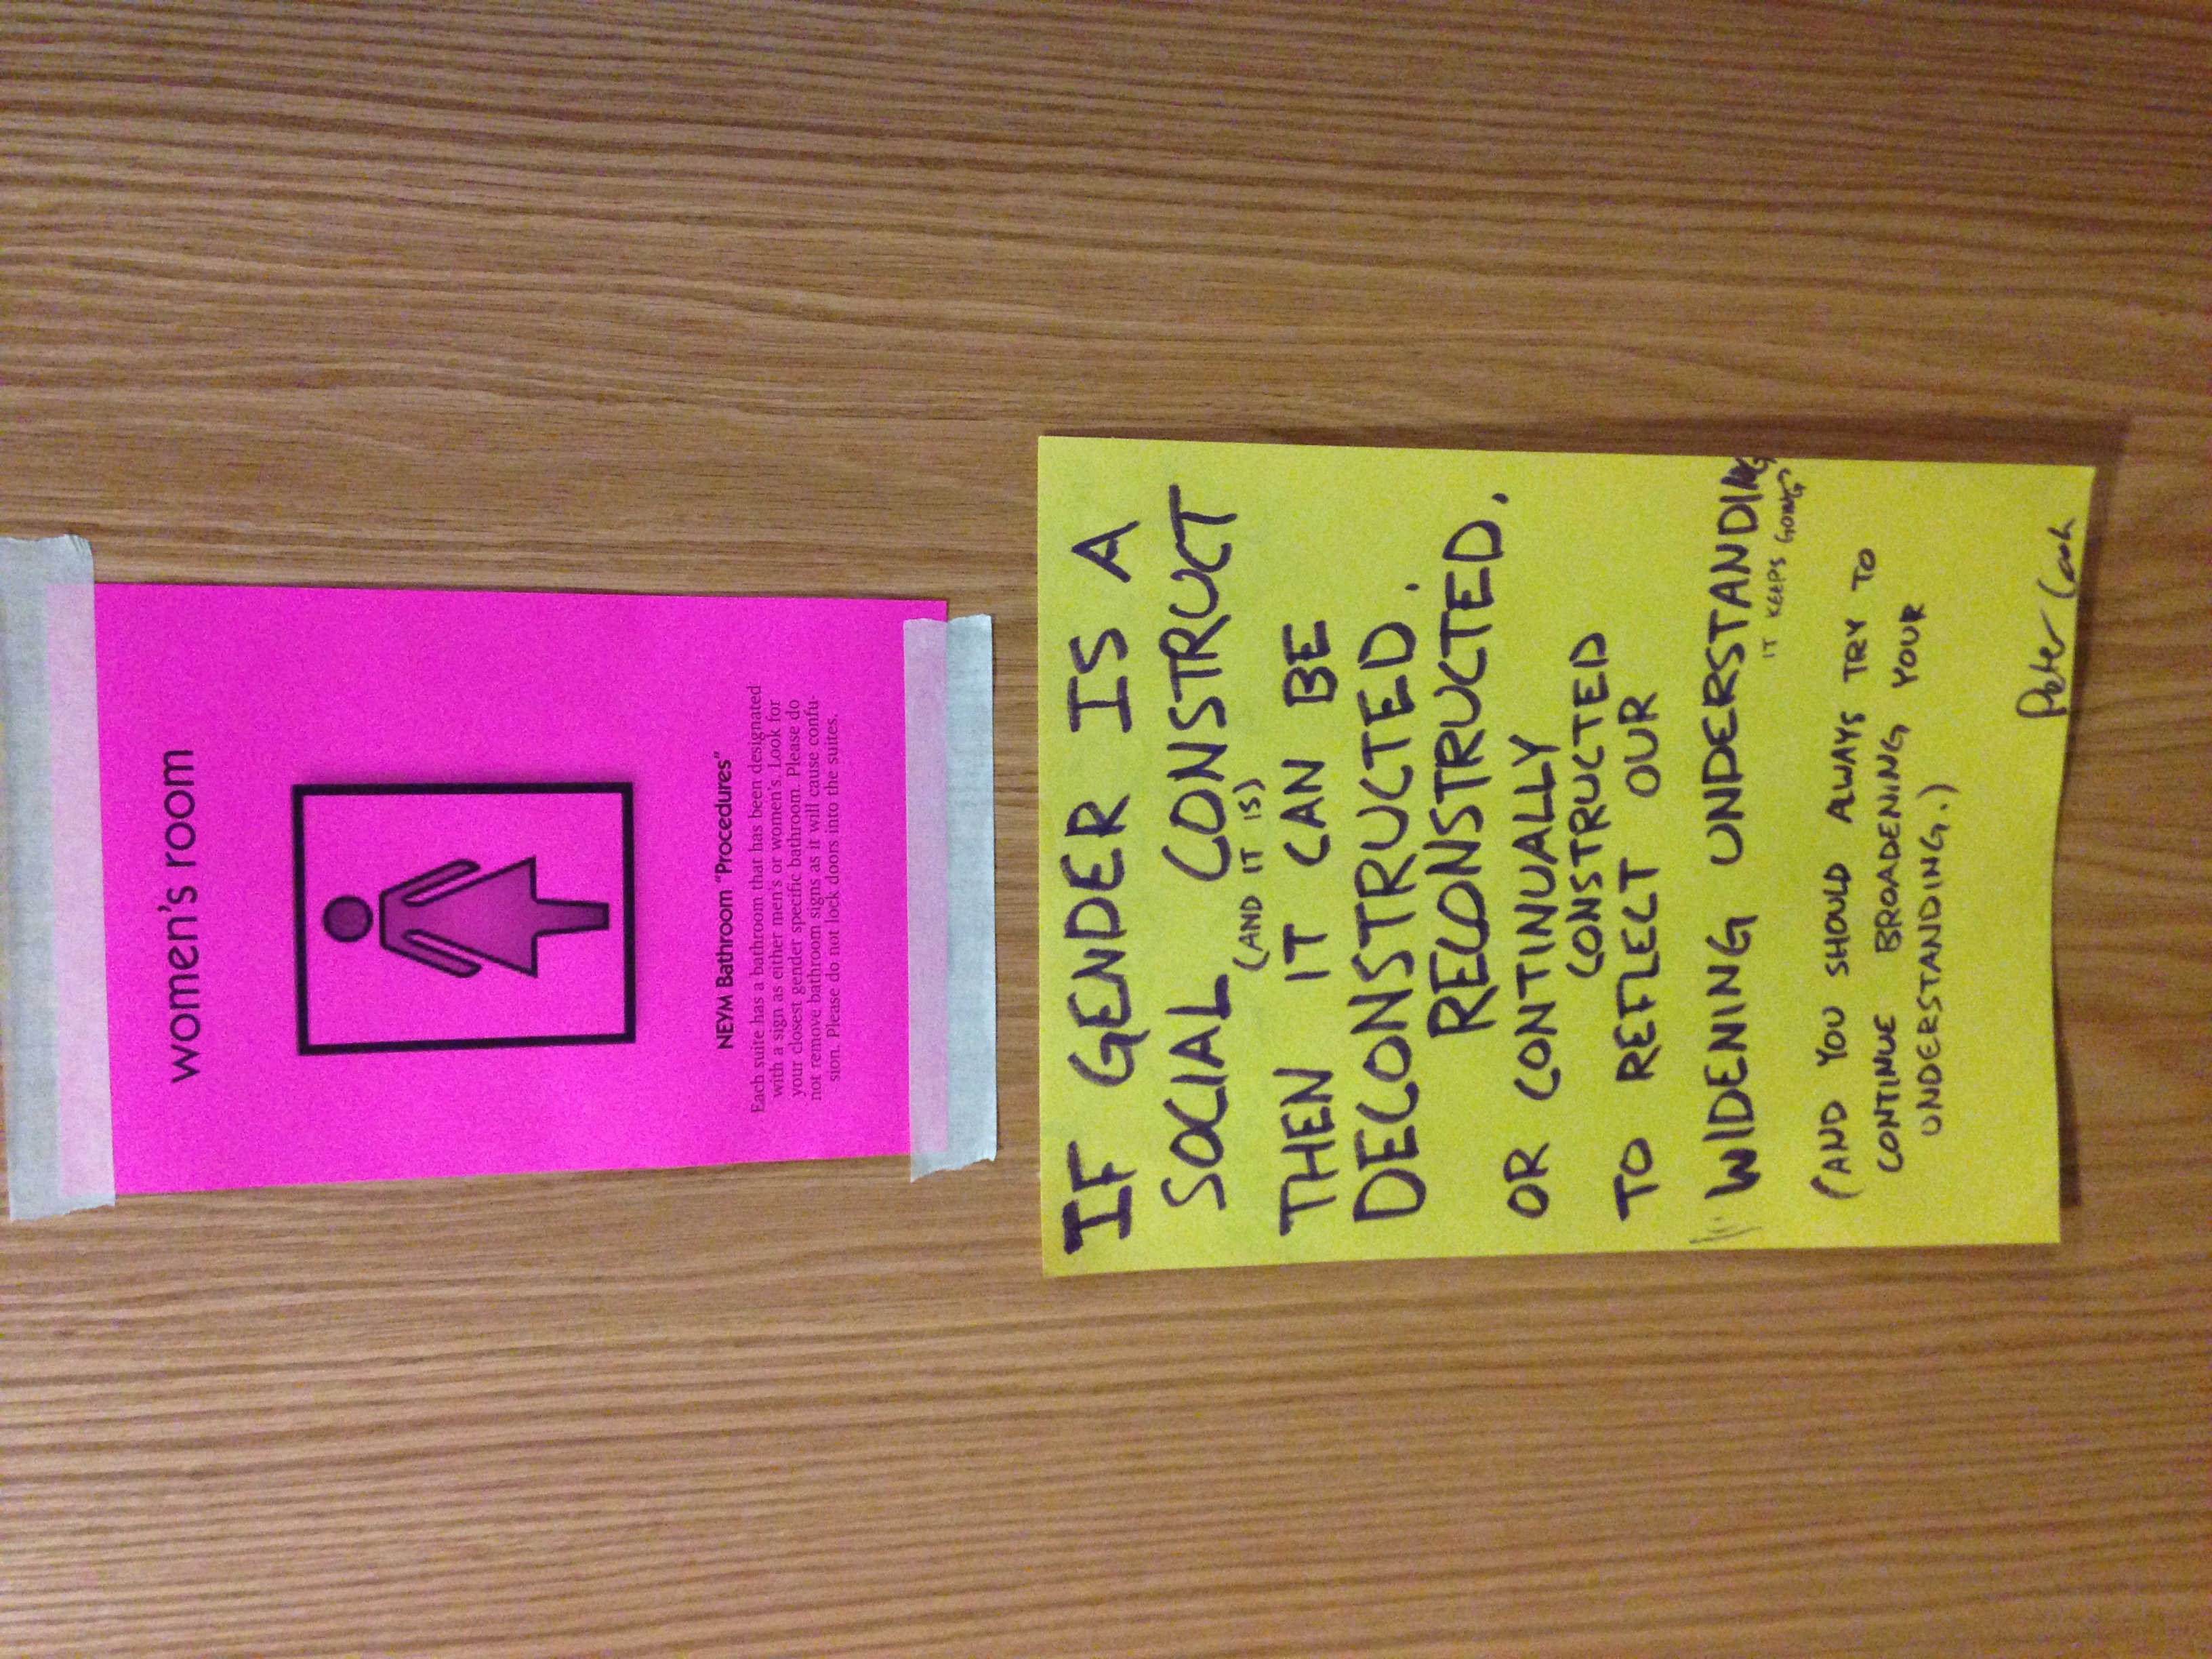 women's room
NEYM Bathroom "Procedures"
Each suite has a bathroom that has been designated
with a sign as either men's or women's. Look for
your closest gender specific bathroom. Please do
not remove bathroom signs as it will cause confu-
sion. Please do not lock doors into the suites.
IF GENDER IS A
SOCIAL CONSTRUCT
(AND IT IS)
THEN IT CAN BE
DECONSTRUCTED.
RECONSTRUCTED.
OR CONTINUALLY
CONSTRUCTED
TO REFLECT OUR
WIDENING UNDERSTANDING
IT KEEPS GOING
(AND YOU SHOULD ALWAYS TRY TO
CONTINUE BROADENING YOUR
UNDERSTANDING.)